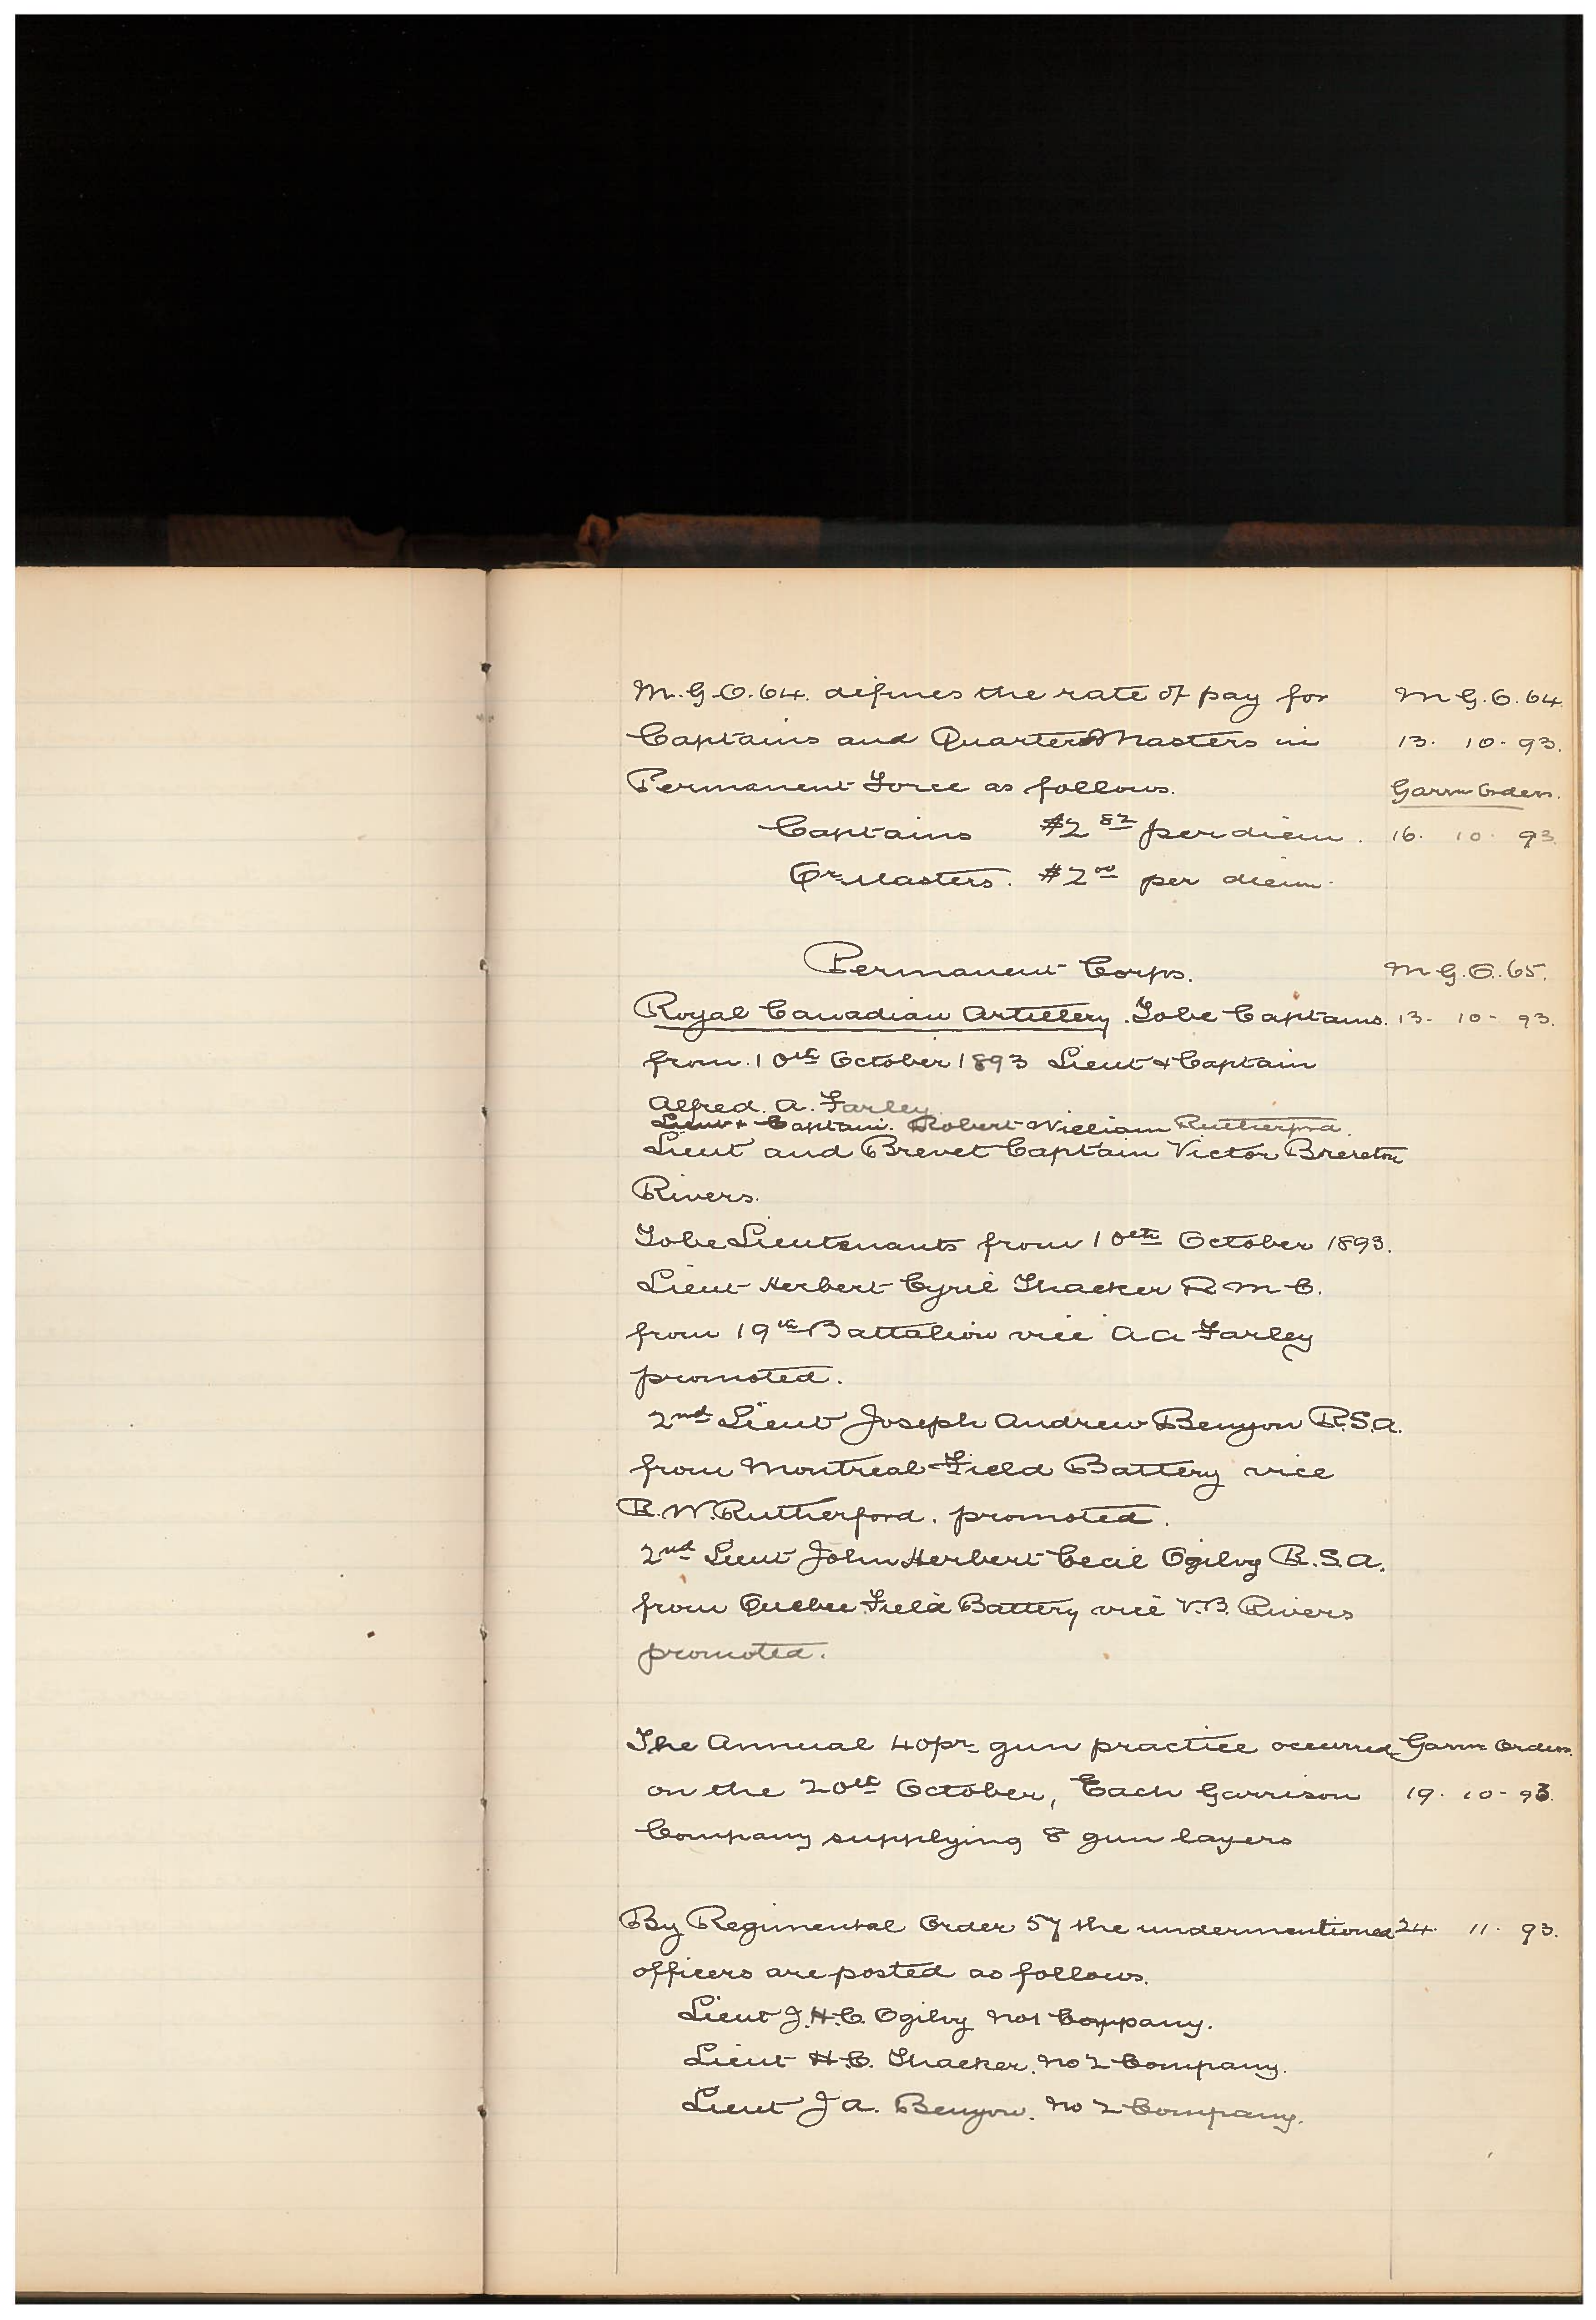 M.G.O. 64. defines the rate of pay for M.G.O. 64.
Captains and QuarterMasters in 13. 10. 93.
Permanent Force as follows. Garrn Orders.
Captains $2 82 per diem. 16. 10. 93.
Qr Masters. $2 00 per diem.
Permanent Corps. M.G.O. 65.
Royal Canadian Artillery. To be Captains. 13. 10. 93.
from 10th October 1893 Lieut & Captain
Alfred. A. Farley.
Lieut & Captain. Robert William Rutherford.
Lieut and Brevet Captain Victor Brereton
Rivers.
To be Lieutenants from 10th October 1893.
Lieut Herbert Cyril Thacker R M C.
from 19th Battalion vice A A Farley
promoted.
2nd Lieut Joseph Andrew Benyon R.S.A.
from Montreal Field Battery vice
R. W. Rutherford. promoted.
2nd Lieut John Herbert Cecil Ogilvy R.S.A.
from Quebec Field Battery vice V.B. Rivers
promoted.
The Annual 40pr gun practice occurred Garrn Orders.
on the 20th October, Each Garrison 19. 10. 93.
Company supplying 8 gun layers
By Regimental Order 57 the undermentioned 24. 11. 93.
officers are posted as follows.
Lieut J.H.C. Ogilvy No 1 Company.
Lieut H.C. Thacker. No 2 Company.
Lieut J A. Benyon. No 2 Company.